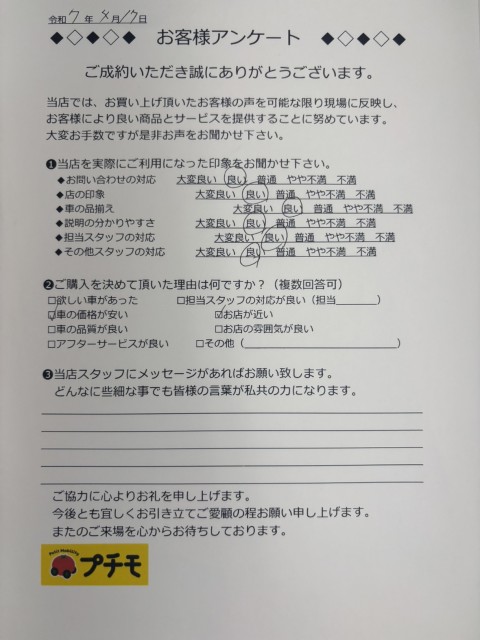 令和 7 年 4 月 17 日
◆◇◆◇◆ お客様アンケート ◆◇◆◇◆
ご成約いただき誠にありがとうございます。
当店では、お買い上げ頂いたお客様の声を可能な限り現場に反映し、
お客様により良い商品とサービスを提供することに努めています。
大変お手数ですが是非お声をお聞かせ下さい。
❶当店を実際にご利用になった印象をお聞かせ下さい。
◆お問い合わせの対応 大変良い 良い 普通 やや不満 不満
◆店の印象 大変良い 良い 普通 やや不満 不満
◆車の品揃え 大変良い 良い 普通 やや不満 不満
◆説明の分かりやすさ 大変良い 良い 普通 やや不満 不満
◆担当スタッフの対応 大変良い 良い 普通 やや不満 不満
◆その他スタッフの対応 大変良い 良い 普通 やや不満 不満
❷ご購入を決めて頂いた理由は何ですか?(複数回答可)
□欲しい車があった □担当スタッフの対応が良い(担当_______)
☑車の価格が安い ☑お店が近い
□車の品質が良い □お店の雰囲気が良い
□アフターサービスが良い □その他(__________________________)
❸当店スタッフにメッセージがあればお願い致します。
どんなに些細な事でも皆様の言葉が私共の力になります。
ご協力に心よりお礼を申し上げます。
今後とも宜しくお引き立てご愛顧の程お願い申し上げます。
またのご来場を心からお待ちしております。
Petit Mobility
プチモ